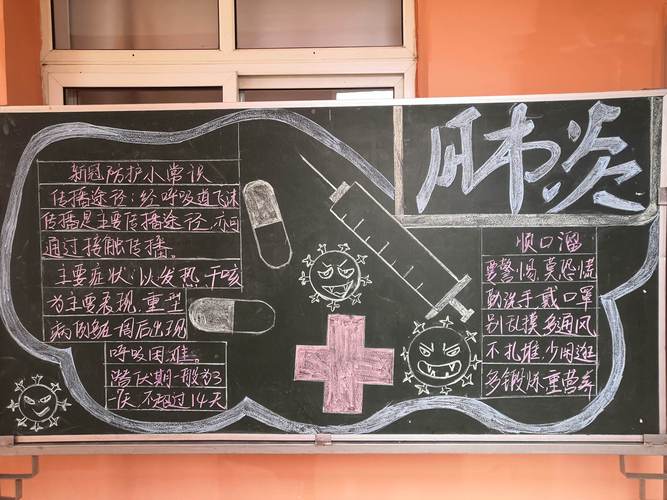 肺炎
新冠防护小常识
传播途径：经呼吸道飞沫
传播是主要传播途径，亦可
通过接触传播。
主要症状：以发热、干咳
为主要表现，重型
病例 一周后出现
呼吸困难。
潜伏期一般为3
-7天 不超过14天
顺口溜
要警惕 莫恐慌
勤洗手 戴口罩
别乱摸 多通风
不扎堆 少闲逛
多锻炼 重营养